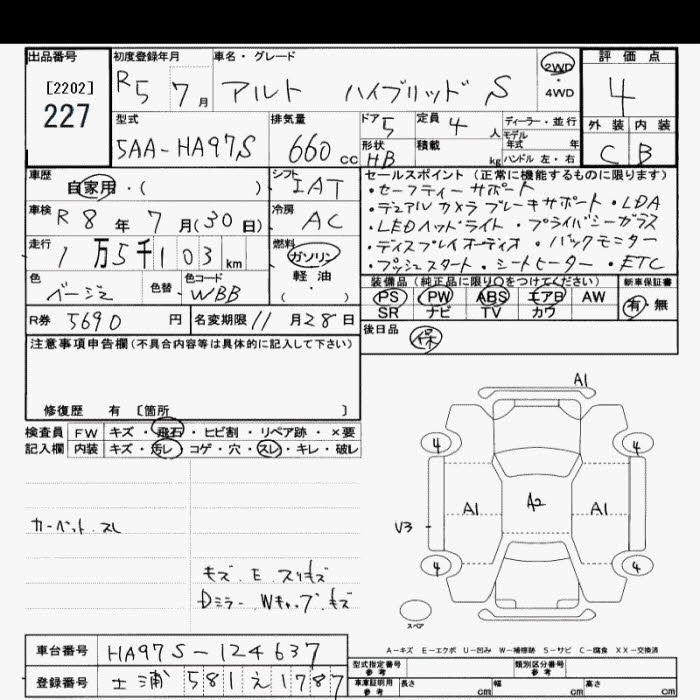 出品番号
[2202]
227
初度登録年月
R5 7月
車名・グレード
アルト ハイブリッド S
2WD
・
4WD
評価点
4
外装 内装
C B
型式
5AA-HA97S
排気量
660cc
ドア 5
定員 4人
ディーラー・並行
モデル
年式 年
ハンドル 左・右
形状 HB
積載 kg
車歴
自家用・( )
シフト
IAT
車検 R8年7月(30日)
冷房
AC
走行 1万5千103km
燃料
ガソリン
軽油
・
( )
色 ベージュ
色替
色コード WBB
R券 5690円
名変期限 11月28日
セールスポイント(正常に機能するものに限ります)
・セーフティーサポート
・デュアルカメラブレーキサポート・LDA
・LEDヘッドライト・プライバシーガラス
・ディスプレイオーディオ・バックモニター
・プッシュスタート・シートヒーター・ETC
装備品(純正品に限り○をつけてください)
新車保証書
PS PW ABS エアB AW
SR ナビ TV カワ
有・無
後日品
保
注意事項申告欄(不具合内容等は具体的に記入して下さい)
修復歴 有 〔箇所 〕
検査員 FW キズ・飛石・ヒビ割・リペア跡・×要
記入欄 内装 キズ・汚レ・コゲ・穴・スレ・キレ・破レ
カーペット.スレ
キズ.E.スリキズ
Dミラー.Wキャップ.キズ
A1
4 4
A1 A2 A1
V3
4 4
スペア
A-キズ E-エクボ U-凹み W-補修跡 S-サビ C-腐食 XX-交換済
車台番号 HA97S-124637
登録番号 土浦 581 え 1787
型式指定番号
参考
類別区分番号
参考
車庫証明用
参考
長さ cm 幅 cm 高さ cm